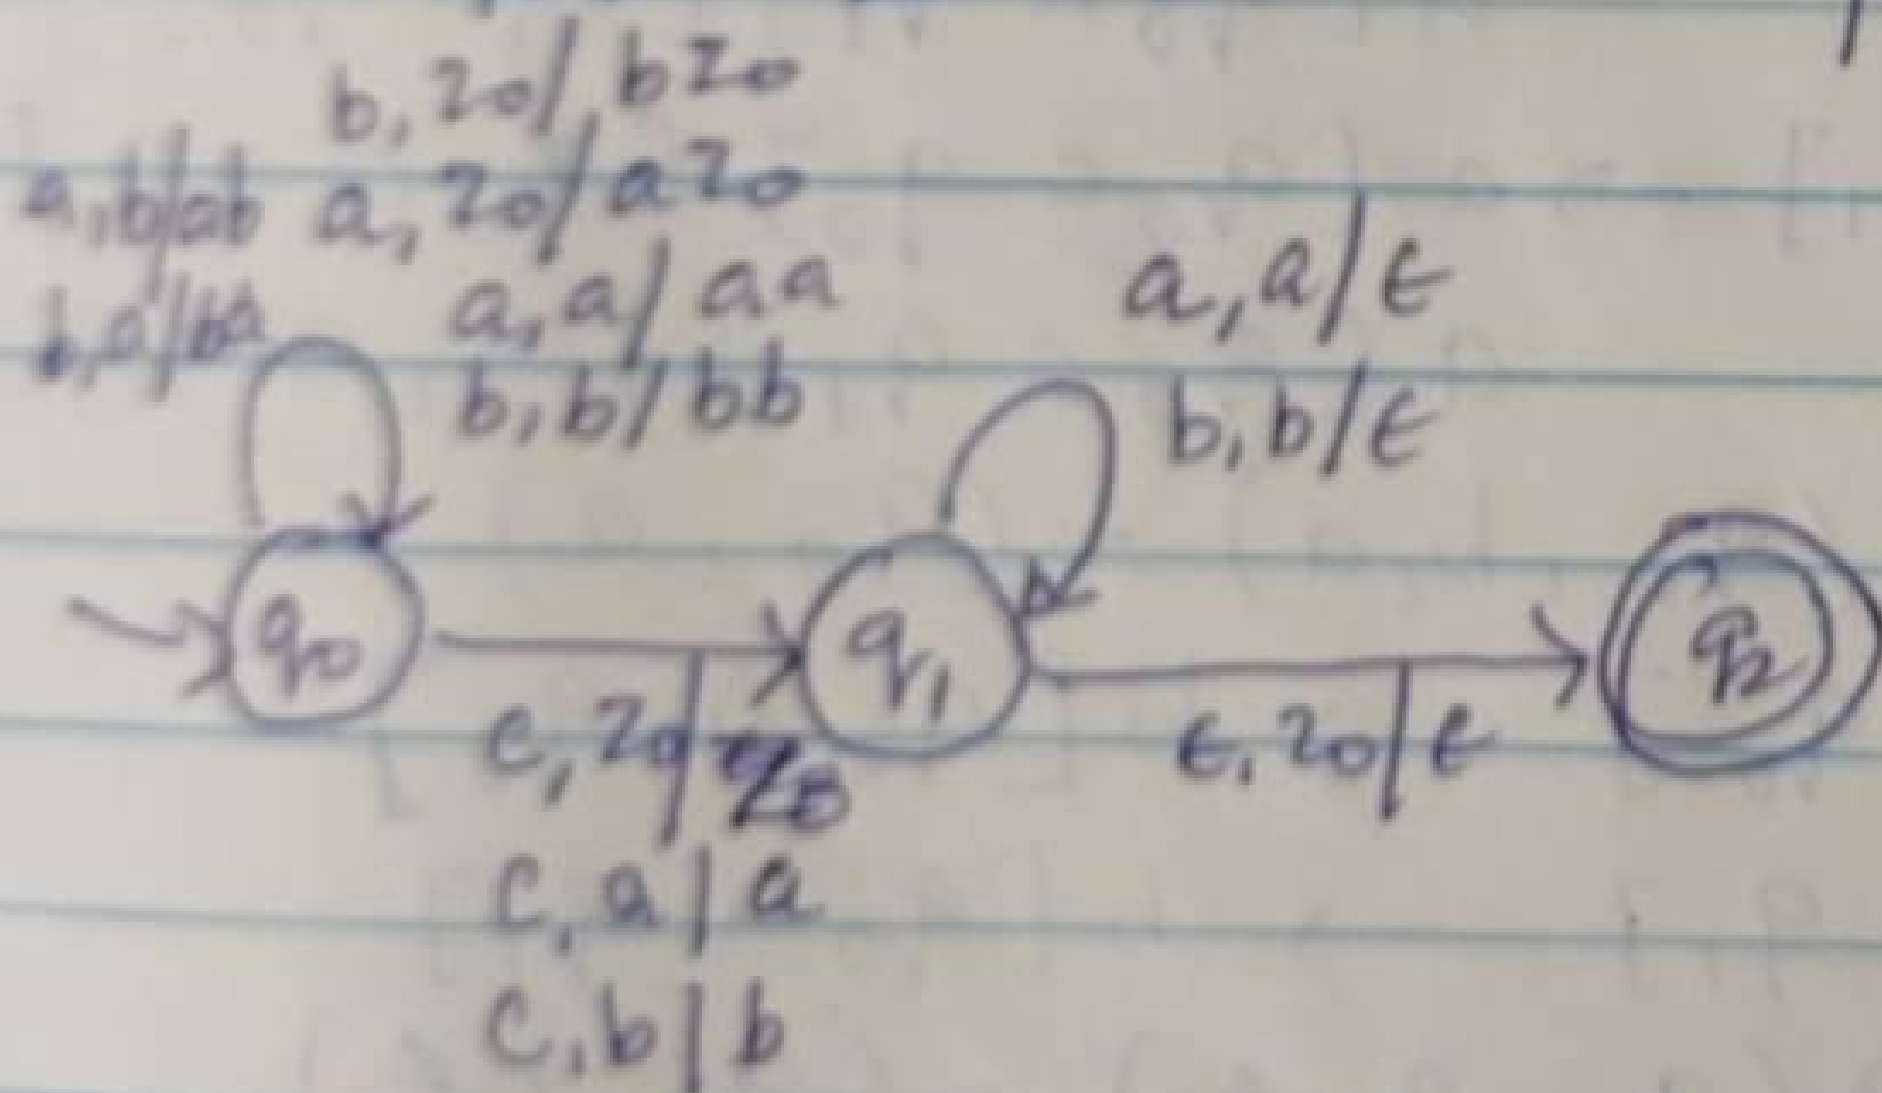 b, z0/ bz0
a,b/ab a, z0/ az0
b,a/ba a, a/ aa
b, b/ bb
a, a/ε
b, b/ε
q0
q1
q2
c, z0/ z0
ε, z0/ε
c, a/ a
c, b/ b